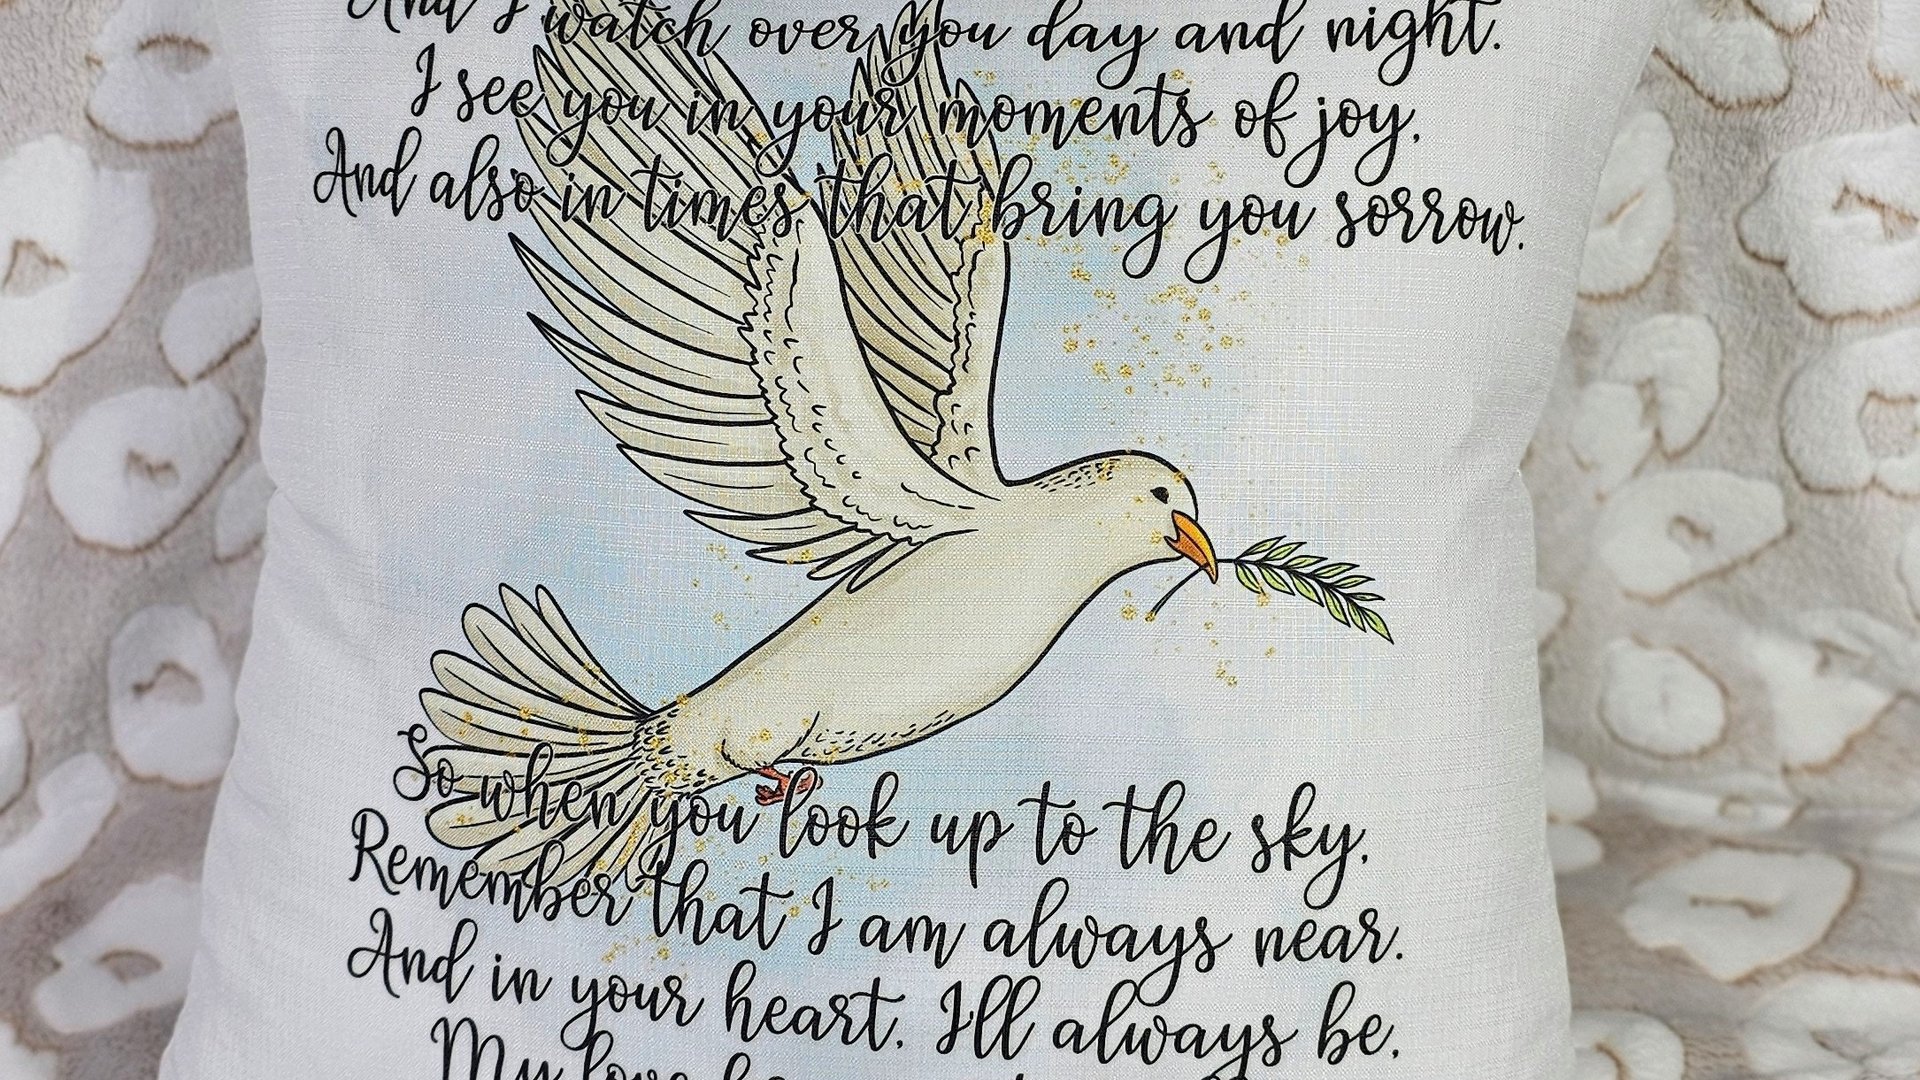 And I watch over you day and night.
I see you in your moments of joy,
And also in times that bring you sorrow.
So when you look up to the sky,
Remember that I am always near.
And in your heart, I'll always be,
My love